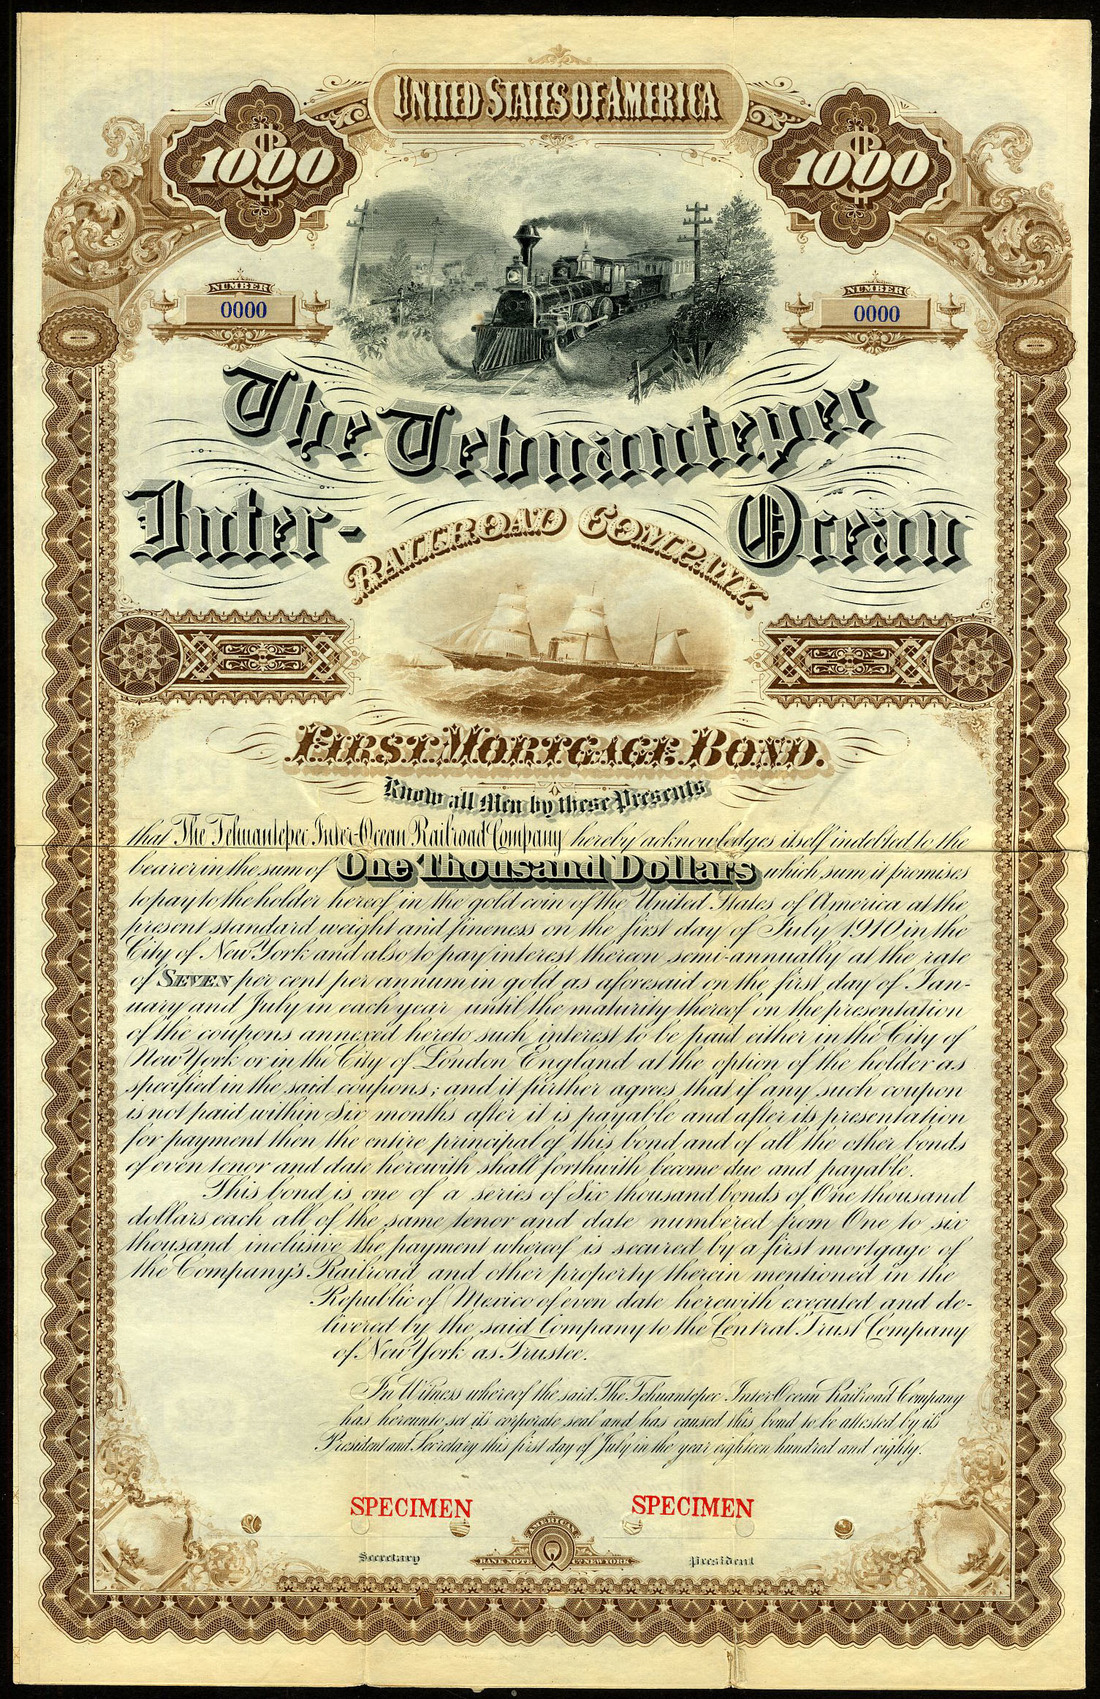 UNITED STATES OF AMERICA
$1000 $1000
NUMBER NUMBER
0000 0000
The Tehuantepec
Inter- Ocean
RAILROAD COMPANY.
FIRST MORTGAGE BOND.
Know all Men by these Presents
that The Tehuantepec Inter-Ocean Railroad Company hereby acknowledges itself indebted to the
bearer in the sum of One Thousand Dollars which sum it promises
to pay to the holder hereof in the gold coin of the United States of America at the
present standard weight and fineness on the first day of July 1910 in the
City of New York and also to pay interest thereon semi-annually at the rate
of SEVEN per cent per annum in gold as aforesaid on the first day of Jan-
uary and July in each year until the maturity thereof on the presentation
of the coupons annexed hereto such interest to be paid either in the City of
New York or in the City of London England at the option of the holder as
specified in the said coupons; and it further agrees that if any such coupon
is not paid within Six months after it is payable and after its presentation
for payment then the entire principal of this bond and of all the other bonds
of even tenor and date herewith shall forthwith become due and payable.
This bond is one of a series of Six thousand bonds of One thousand
dollars each all of the same tenor and date numbered from One to six
thousand inclusive the payment whereof is secured by a first mortgage of
the Company's Railroad and other property therein mentioned in the
Republic of Mexico of even date herewith executed and de-
livered by the said Company to the Central Trust Company
of New York as Trustee.
In Witness whereof the said The Tehuantepec Inter-Ocean Railroad Company
has hereunto set its corporate seal and has caused this bond to be attested by its
President and Secretary this first day of July in the year eighteen hundred and eighty.
SPECIMEN SPECIMEN
Secretary President
AMERICAN
BANK NOTE CO. NEW YORK